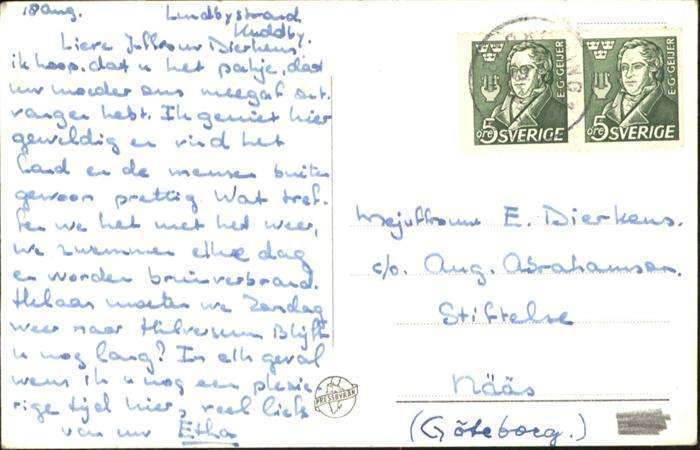 18 aug. Lundbystrand
Kuddby.
Lieve Juffrouw Dierkens.
ik hoop, dat u het pakje, dat
uw moeder ons meegaf ont-
vangen hebt. Ik geniet hier
geweldig en vind het
land en de mensen buiten
gewoon prettig Wat tref-
fen we het met het weer,
we zwemmen elke dag
en worden bruinverbrand.
Helaas moeten we Zondag
weer naar Hilversum Blijft
u nog lang? In elk geval
wens ik u nog een plezie-
rige tijd hier, veel liefs
van uw Etha
5 öre SVERIGE
E·G·GEIJER
5 öre SVERIGE
E·G·GEIJER
Mejuffrouw E. Dierkens.
c/o. Aug. Abrahamson.
Stiftelse
Nääs
(Göteborg.)
PRESSBYRÅN